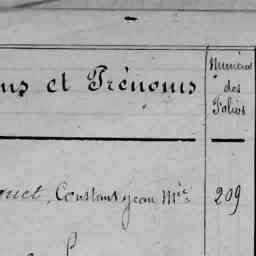 ms et Prénoms
Numéros
des
Folios
quet, Constans Jean Mie 209